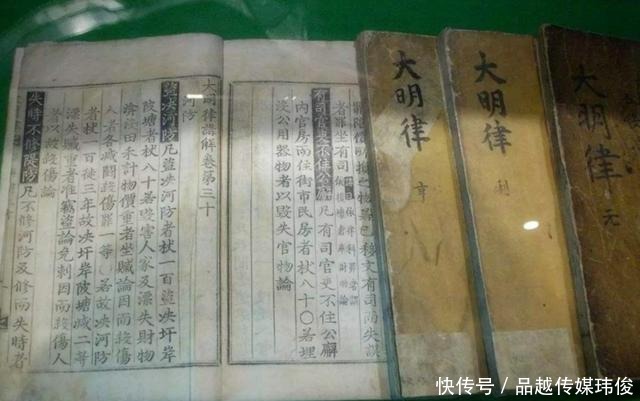 大明律
元
大明律
利
大明律
亨
損之物並已移文有司而失誤
者罪坐有司
有司官吏不住公廨凡有司官吏不住公廨
內官房而住街市民房者杖八十○若埋
沒公用器物者以毀失官物論
大明律講解卷第三十
河防
盜決河防凡盜決河防者杖一百盜決圩岸
陂塘者杖八十若毀害人家及漂失財物
渰沒田禾計物價重者坐贓論因而殺傷
人者各減鬪殺傷罪一等○若故決河防
者杖一百徒三年故決圩岸陂塘減二等
漂失贓重者准竊盜論免刺因而殺傷人
者以故殺傷論
失時不修隄防凡不修河防及修而失時者
快传号 / 品越传媒玮俊